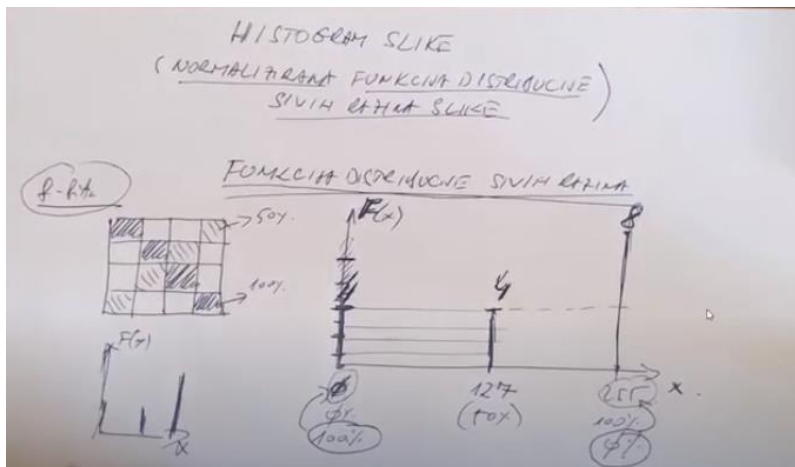 HISTOGRAM SLIKE
(NORMALIZIRANA FUNKCIJA DISTRIBUCIJE
SIVIH RAZINA SLIKE)
FUNKCIJA DISTRIBUCIJE SIVIH RAZINA
8-bita
50%
100%
F(x)
8
4
4
0
127
255
x
0%
(50%)
100%
100%
0%
F(x)
x